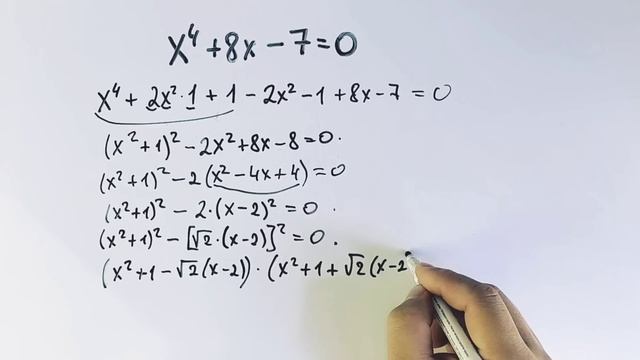 x⁴+8x-7=0
x⁴+2x²·1+1-2x²-1+8x-7=0
(x²+1)²-2x²+8x-8=0.
(x²+1)²-2(x²-4x+4)=0
(x²+1)²-2·(x-2)²=0.
(x²+1)²-[√2·(x-2)]²=0.
(x²+1-√2(x-2))·(x²+1+√2(x-2